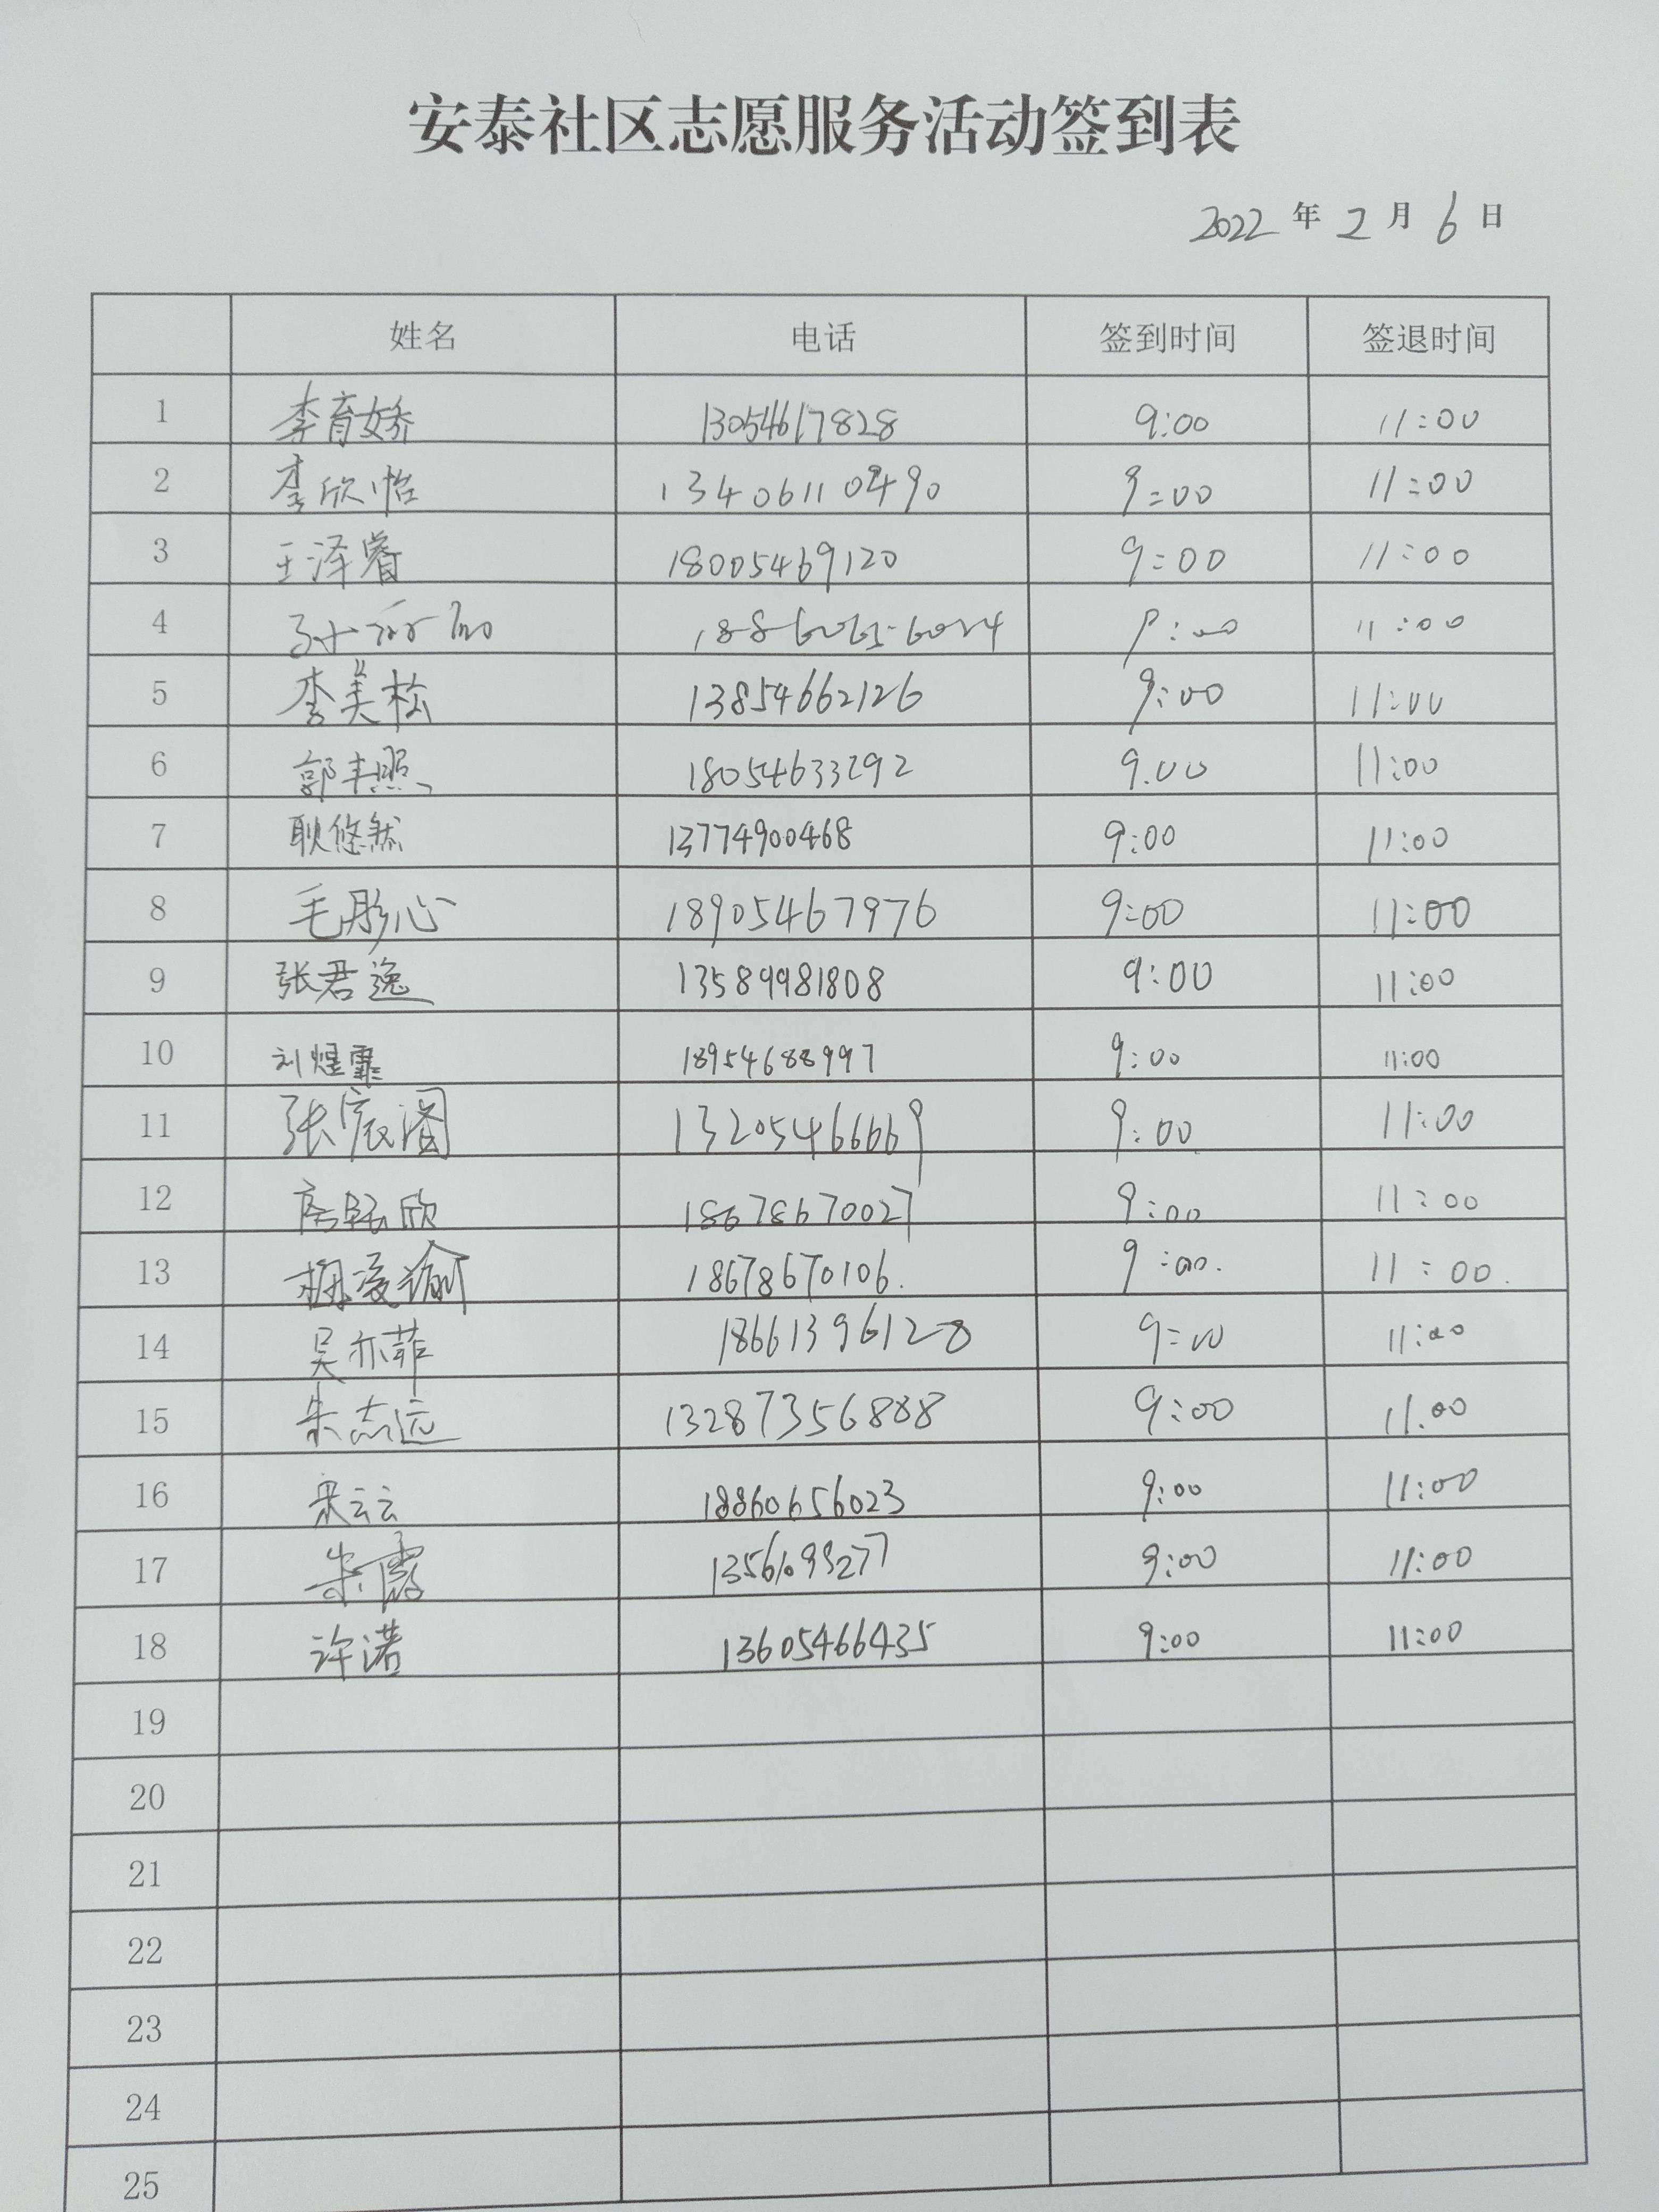 安泰社区志愿服务活动签到表
2022 年 2 月 6 日
姓名 电话 签到时间 签退时间
1 李育娇 13054617828 9:00 11:00
2 李欣怡 13406110490 9:00 11:00
3 王泽睿 18005469120 9:00 11:00
4 9:00 11:00
5 李美松 13854662126 9:00 11:00
6 郭丰照 18054633292 9.00 11:00
7 耿悠然 13774900468 9:00 11:00
8 毛彤心 18905467976 9:00 11:00
9 张君逸 13589981808 9:00 11:00
10 刘煜霏 18954688997 9:00 11:00
11 张宸溍 13205466669 9:00 11:00
12 18678670027 9:00 11:00
13 18678670106. 9:00. 11:00.
14 吴亦菲 18661396128 9:00 11:00
15 朱志远 13287356888 9:00 11.00
16 宋云云 18860656023 9:00 11:00
17 朱霞 9:00 11:00
18 许诺 13605466435 9:00 11:00
19
20
21
22
23
24
25